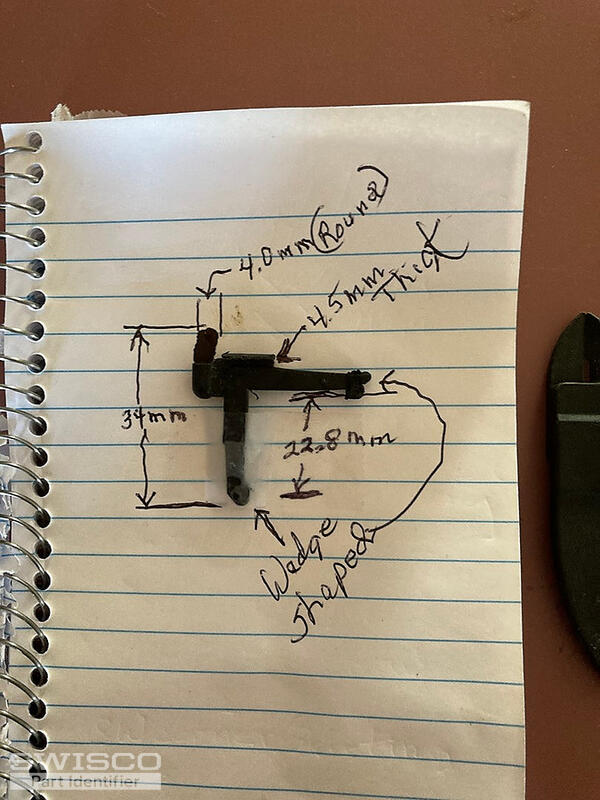 4.0mm (Round)
4.5mm
Thick
34mm
22.8mm
Wedge
shaped
SWISCO
Part Identifier